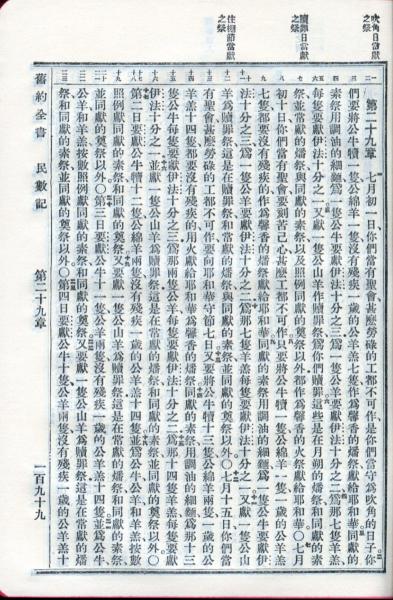 吹角日當獻
之祭
贖罪日當獻
之祭
住棚節當獻
之祭
第二十九章 七月初一日你們當有聖會甚麼勞碌的工都不可作是你們當守爲吹角的日子你
們要將公牛犢一隻公綿羊一隻沒有殘疾一歲的公羊羔七隻作爲馨香的燔祭獻給耶和華同獻的
素祭用調油的細麵爲一隻公牛要獻伊法十分之三爲一隻公羊要獻伊法十分之二爲那七隻羊羔
每隻要獻伊法十分之一又獻一隻公山羊作贖罪祭爲你們贖罪這些是在月朔的燔祭和同獻的素
祭並常獻的燔祭與同獻的素祭以及照例同獻的奠祭以外都作爲馨香的火祭獻給耶和華〇七月
初十日你們當有聖會要刻苦己心甚麼工都不可作只要將公牛犢一隻公綿羊一隻一歲的公羊羔
七隻都要沒有殘疾的作爲馨香的燔祭獻給耶和華同獻的素祭用調油的細麵爲一隻公牛要獻伊
法十分之三爲一隻公羊要獻伊法十分之二爲那七隻羊羔每隻要獻伊法十分之一又獻一隻公山
羊爲贖罪祭這是在贖罪祭和常獻的燔祭與同獻的素祭並同獻的奠祭以外〇七月十五日你們當
有聖會甚麼勞碌的工都不可作要向耶和華守節七日又要將公牛犢十三隻公綿羊兩隻一歲的公
羊羔十四隻都要沒有殘疾的用火獻給耶和華爲馨香的燔祭同獻的素祭用調油的細麵爲那十三
隻公牛每隻要獻伊法十分之三爲那兩隻公羊每隻要獻伊法十分之二爲那十四隻羊羔每隻要獻
伊法十分之一並獻一隻公山羊爲贖罪祭這是在常獻的燔祭和同獻的素祭並同獻的奠祭以外〇
第二日要獻公牛犢十二隻公綿羊兩隻沒有殘疾一歲的公羊羔十四隻並爲公牛公羊和羊羔按數
照例獻同獻的素祭和同獻的奠祭又要獻一隻公山羊爲贖罪祭這是在常獻的燔祭和同獻的素祭
並同獻的奠祭以外〇第三日要獻公牛十一隻公羊兩隻沒有殘疾一歲的公羊羔十四隻並爲公牛
公羊和羊羔按數照例獻同獻的素祭和同獻的奠祭又要獻一隻公山羊爲贖罪祭這是在常獻的燔
祭和同獻的素祭並同獻的奠祭以外〇第四日要獻公牛十隻公羊兩隻沒有殘疾一歲的公羊羔十
舊約全書 民數記 第二十九章 一百九十九